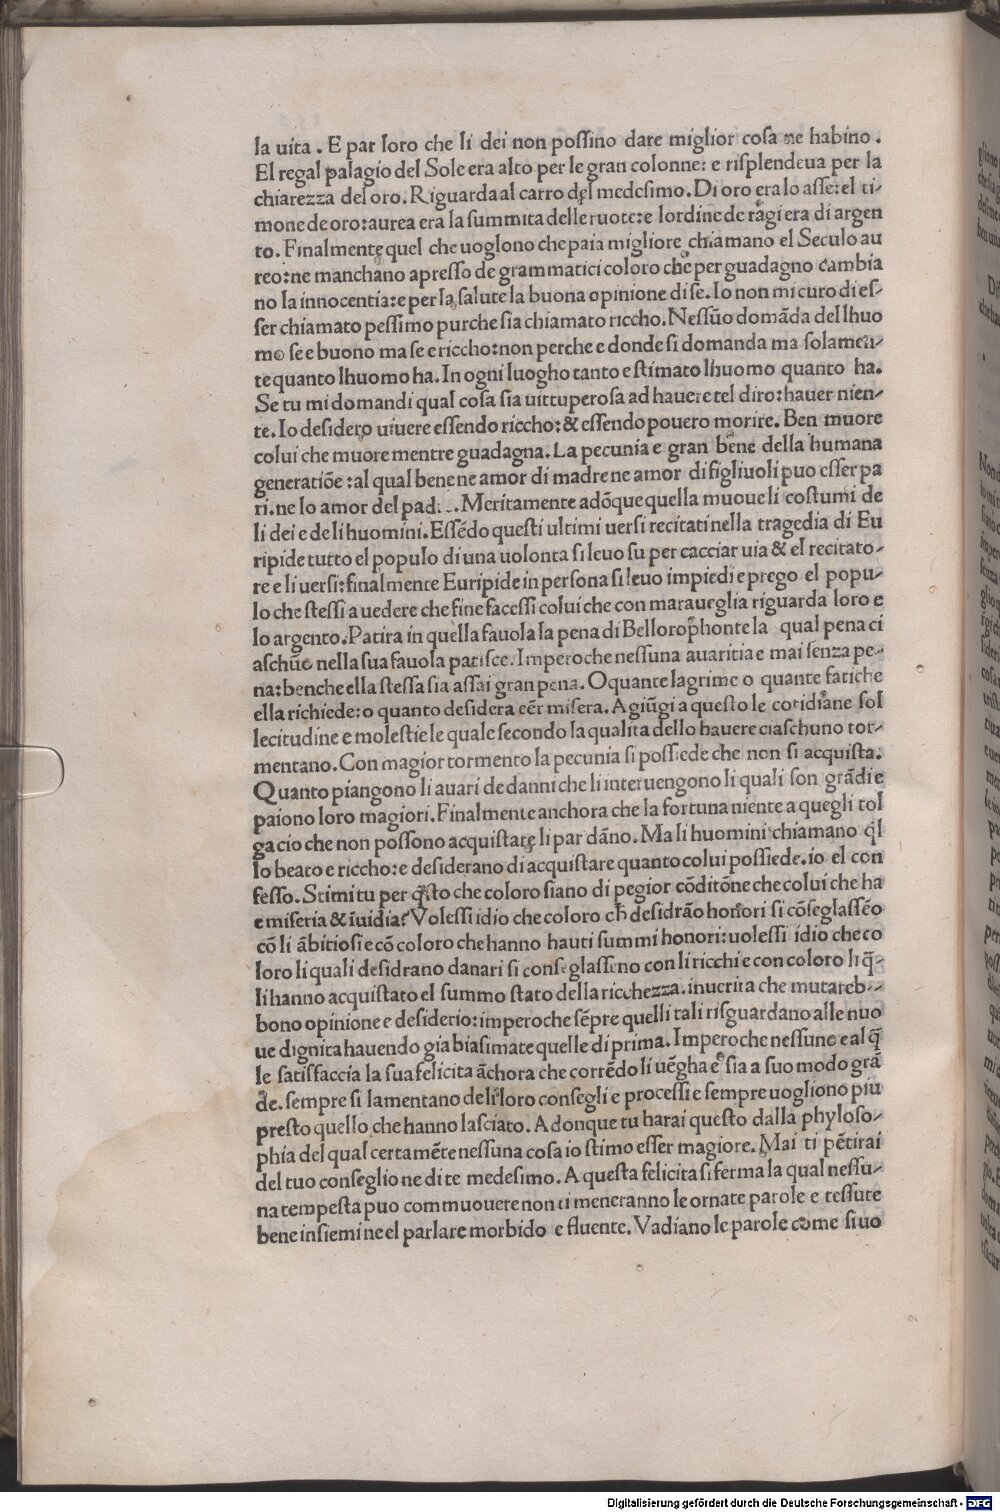 la uita . E par loro che li dei non poſſino dare miglior coſa ne habino .
El regal palagio del Sole era alto per le gran colonne: e riſplendeua per la
chiarezza del oro. Riguarda al carro del medeſimo. Di oro era lo aſſe: el ti-
mone de oro: aurea era la ſummita delle ruote: e lordine de rāgi era di argen
to. Finalmente quel che uoglono che paia migliore chiamano el Seculo au
reo: ne manchano apreſſo de grammatici coloro che per guadagno cambia
no la innocentia: e per la ſalute la buona opinione di ſe. Io non mi curo di eſ-
ſer chiamato peſſimo purche ſia chiamato riccho. Neſſūo domāda del lhuo
mo ſe e buono ma ſe e riccho: non perche e donde ſi domanda ma ſolamen-
te quanto lhuomo ha. In ogni luogho tanto e ſtimato lhuomo quanto ha.
Se tu mi domandi qual coſa ſia uittuperoſa ad hauere tel diro: hauer nien-
te. Io deſidero uiuere eſſendo riccho: & eſſendo pouero morire. Ben muore
colui che muore mentre guadagna. La pecunia e gran bene della humana
generatiōe : al qual bene ne amor di madre ne amor di figliuoli puo eſſer pa
ri. ne lo amor del pad... Meritamente adōque quella muoue li coſtumi de
li dei e de li huomini. Eſſēdo queſti ultimi uerſi recitati nella tragedia di Eu
ripide tutto el populo di una uolonta ſi leuo ſu per cacciar uia & el recitato-
re e li uerſi: finalmente Euripide in perſona ſi leuo impiedi e prego el popu-
lo che ſteſſi a uedere che fine faceſſi colui che con marauegl̄ia riguarda loro e
lo argento. Patira in quella fauola la pena di Bellorophonte la qual pena ci
aſchūo nella ſua fauola patiſce. Imperoche neſſuna auaritia e mai ſenza pe-
na: benche ella ſteſſa ſia aſſai gran pena. O quante lagrime o quante fatiche
ella richiede: o quanto deſidera eēr miſera. A giūgi a queſto le cotidiane ſol
lecitudine e moleſtie le quale ſecondo la qualita dello hauere ciaſchuno tor-
mentano. Con magior tormento la pecunia ſi poſſiede che non ſi acquiſta.
Quanto piangono li auari de danni che li interuengono li quali ſon grādi e
paiono loro magiori. Finalmente anchora che la fortuna niente a quegli tol
ga cio che non poſſono acquiſtare li par dāno. Ma li huomini chiamano q̄l
lo beato e riccho: e deſiderano di acquiſtare quanto colui poſſiede. io el con
feſſo. Stimi tu per q̄ſto che coloro ſiano di pegior cōditōne che colui che ha
e miſeria & īuidia? Voleſſi idio che coloro ch̄ deſidrāo honori ſi cōſeglaſſēo
cō li ābitioſi e cō coloro che hanno hauti ſummi honori: uoleſſi idio che co
loro li quali deſidrano danari ſi conſeglaſſeno con li ricchi e con coloro li q̄-
li hanno acquiſtato el ſummo ſtato della ricchezza. in uerita che mutareb-
bono opinione e deſiderio: imperoche ſēpre quelli tali riſguardano alle nuo
ue dignita hauendo gia biaſimate quelle di prima. Imperoche neſſuno e al q̄
le ſatiſfaccia la ſua felicita āchora che corrēdo li uēgha e ſia a ſuo modo grā
de. ſempre ſi lamentano de li loro conſegli e proceſſi e ſempre uogliono piu
preſto quello che hanno laſciato. Adonque tu harai queſto dalla phyloſo-
phia del qual certamēte neſſuna coſa io ſtimo eſſer magiore. Mai ti pētirai
del tuo conſeglio ne di te medeſimo. A queſta felicita ſi ferma la qual neſſu-
na tempeſta puo commuouere non ti meneranno le ornate parole e teſſute
bene inſiemi ne el parlare morbido e fluente. Vadiano le parole come ſi uo
Digitalisierung gefördert durch die Deutsche Forschungsgemeinschaft - DFG